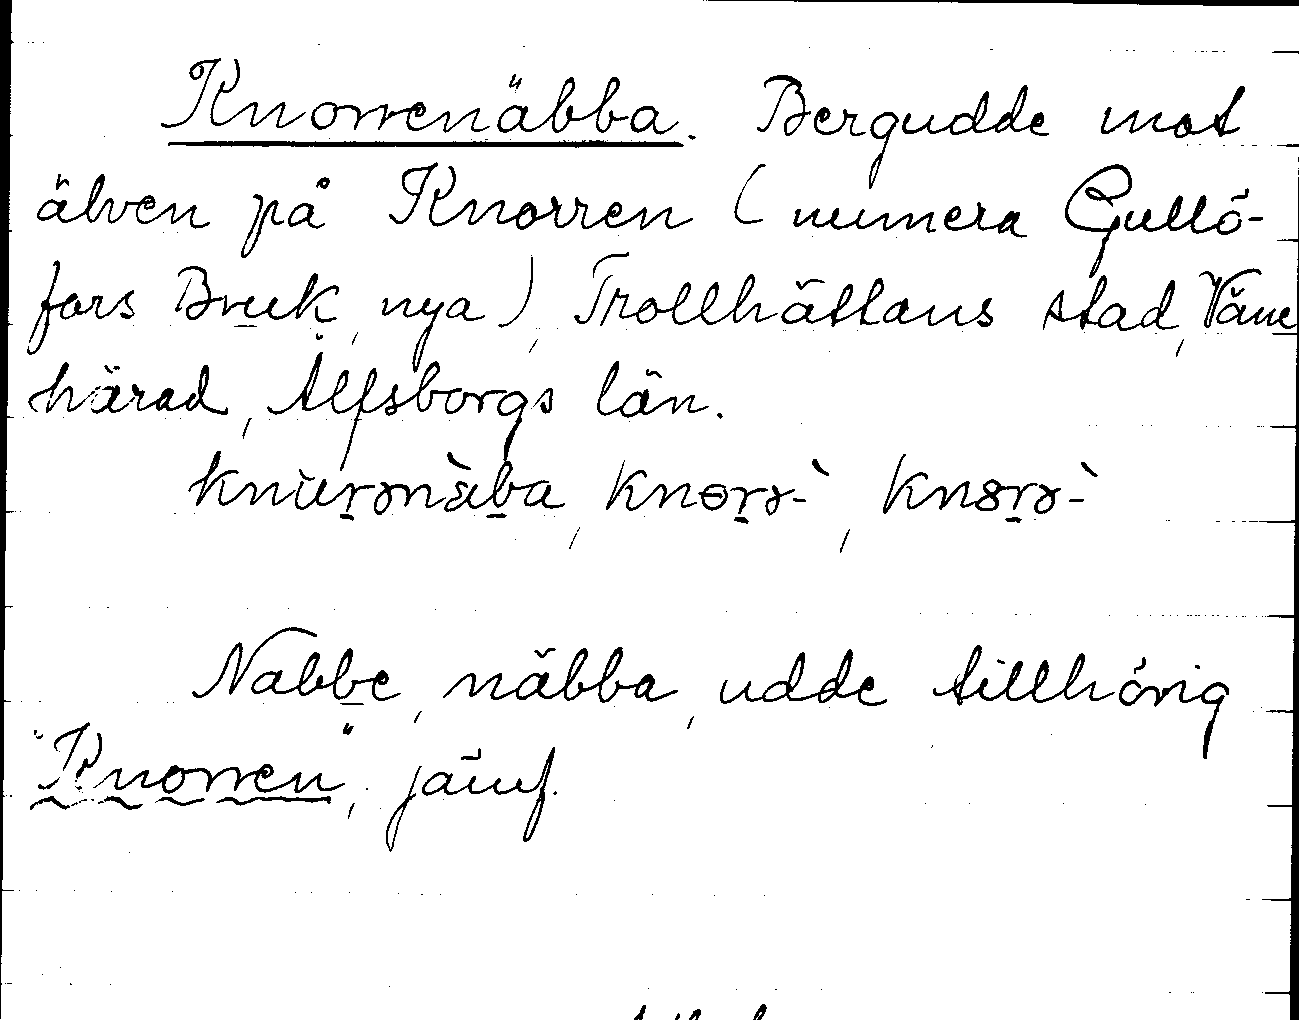 Knorrenäbba. Bergudde mot
älven på Knorren (numera Gullö-
fors Bruk, nya), Trollhättans stad, Väne
härad, Älfsborgs län.
knùrənä̀ba, knɵrə-̀, kn8rə-̀
Nabbe, näbba, udde tillhörig
"Knorren", jämf.